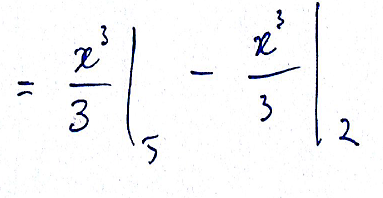 = x³/3 |₅ - x³/3 |₂